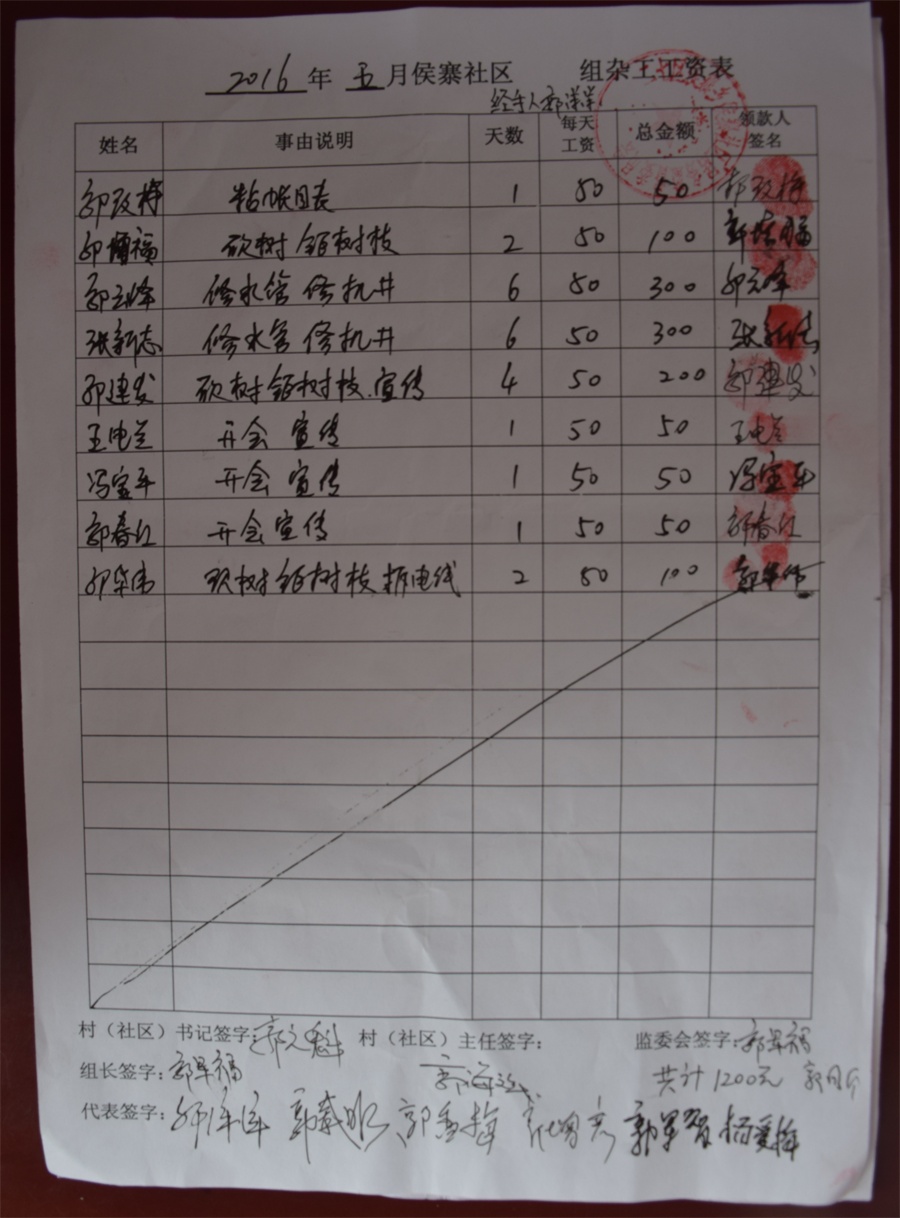 2016 年 五 月侯寨社区 组杂工工资表
经手人郭洋洋
姓名 事由说明 天数 每天工资 总金额 领款人签名
郭改梅 粘帐目表 1 50 50 郭改梅
砍树 锯树枝 2 50 100
郭云峰 修水管 修机井 6 50 300 郭云峰
张新志 修水管 修机井 6 50 300 张新志
郭建发 砍树锯树枝.宣传 4 50 200 郭建发
王电兰 开会 宣传 1 50 50 王电兰
冯宝平 开会 宣传 1 50 50 冯宝平
郭春红 开会宣传 1 50 50 郭春红
郭华伟 砍树锯树枝 拆电线 2 50 100 郭华伟
村（社区）书记签字: 村（社区）主任签字: 监委会签字:
组长签字: 共计1200元
代表签字: